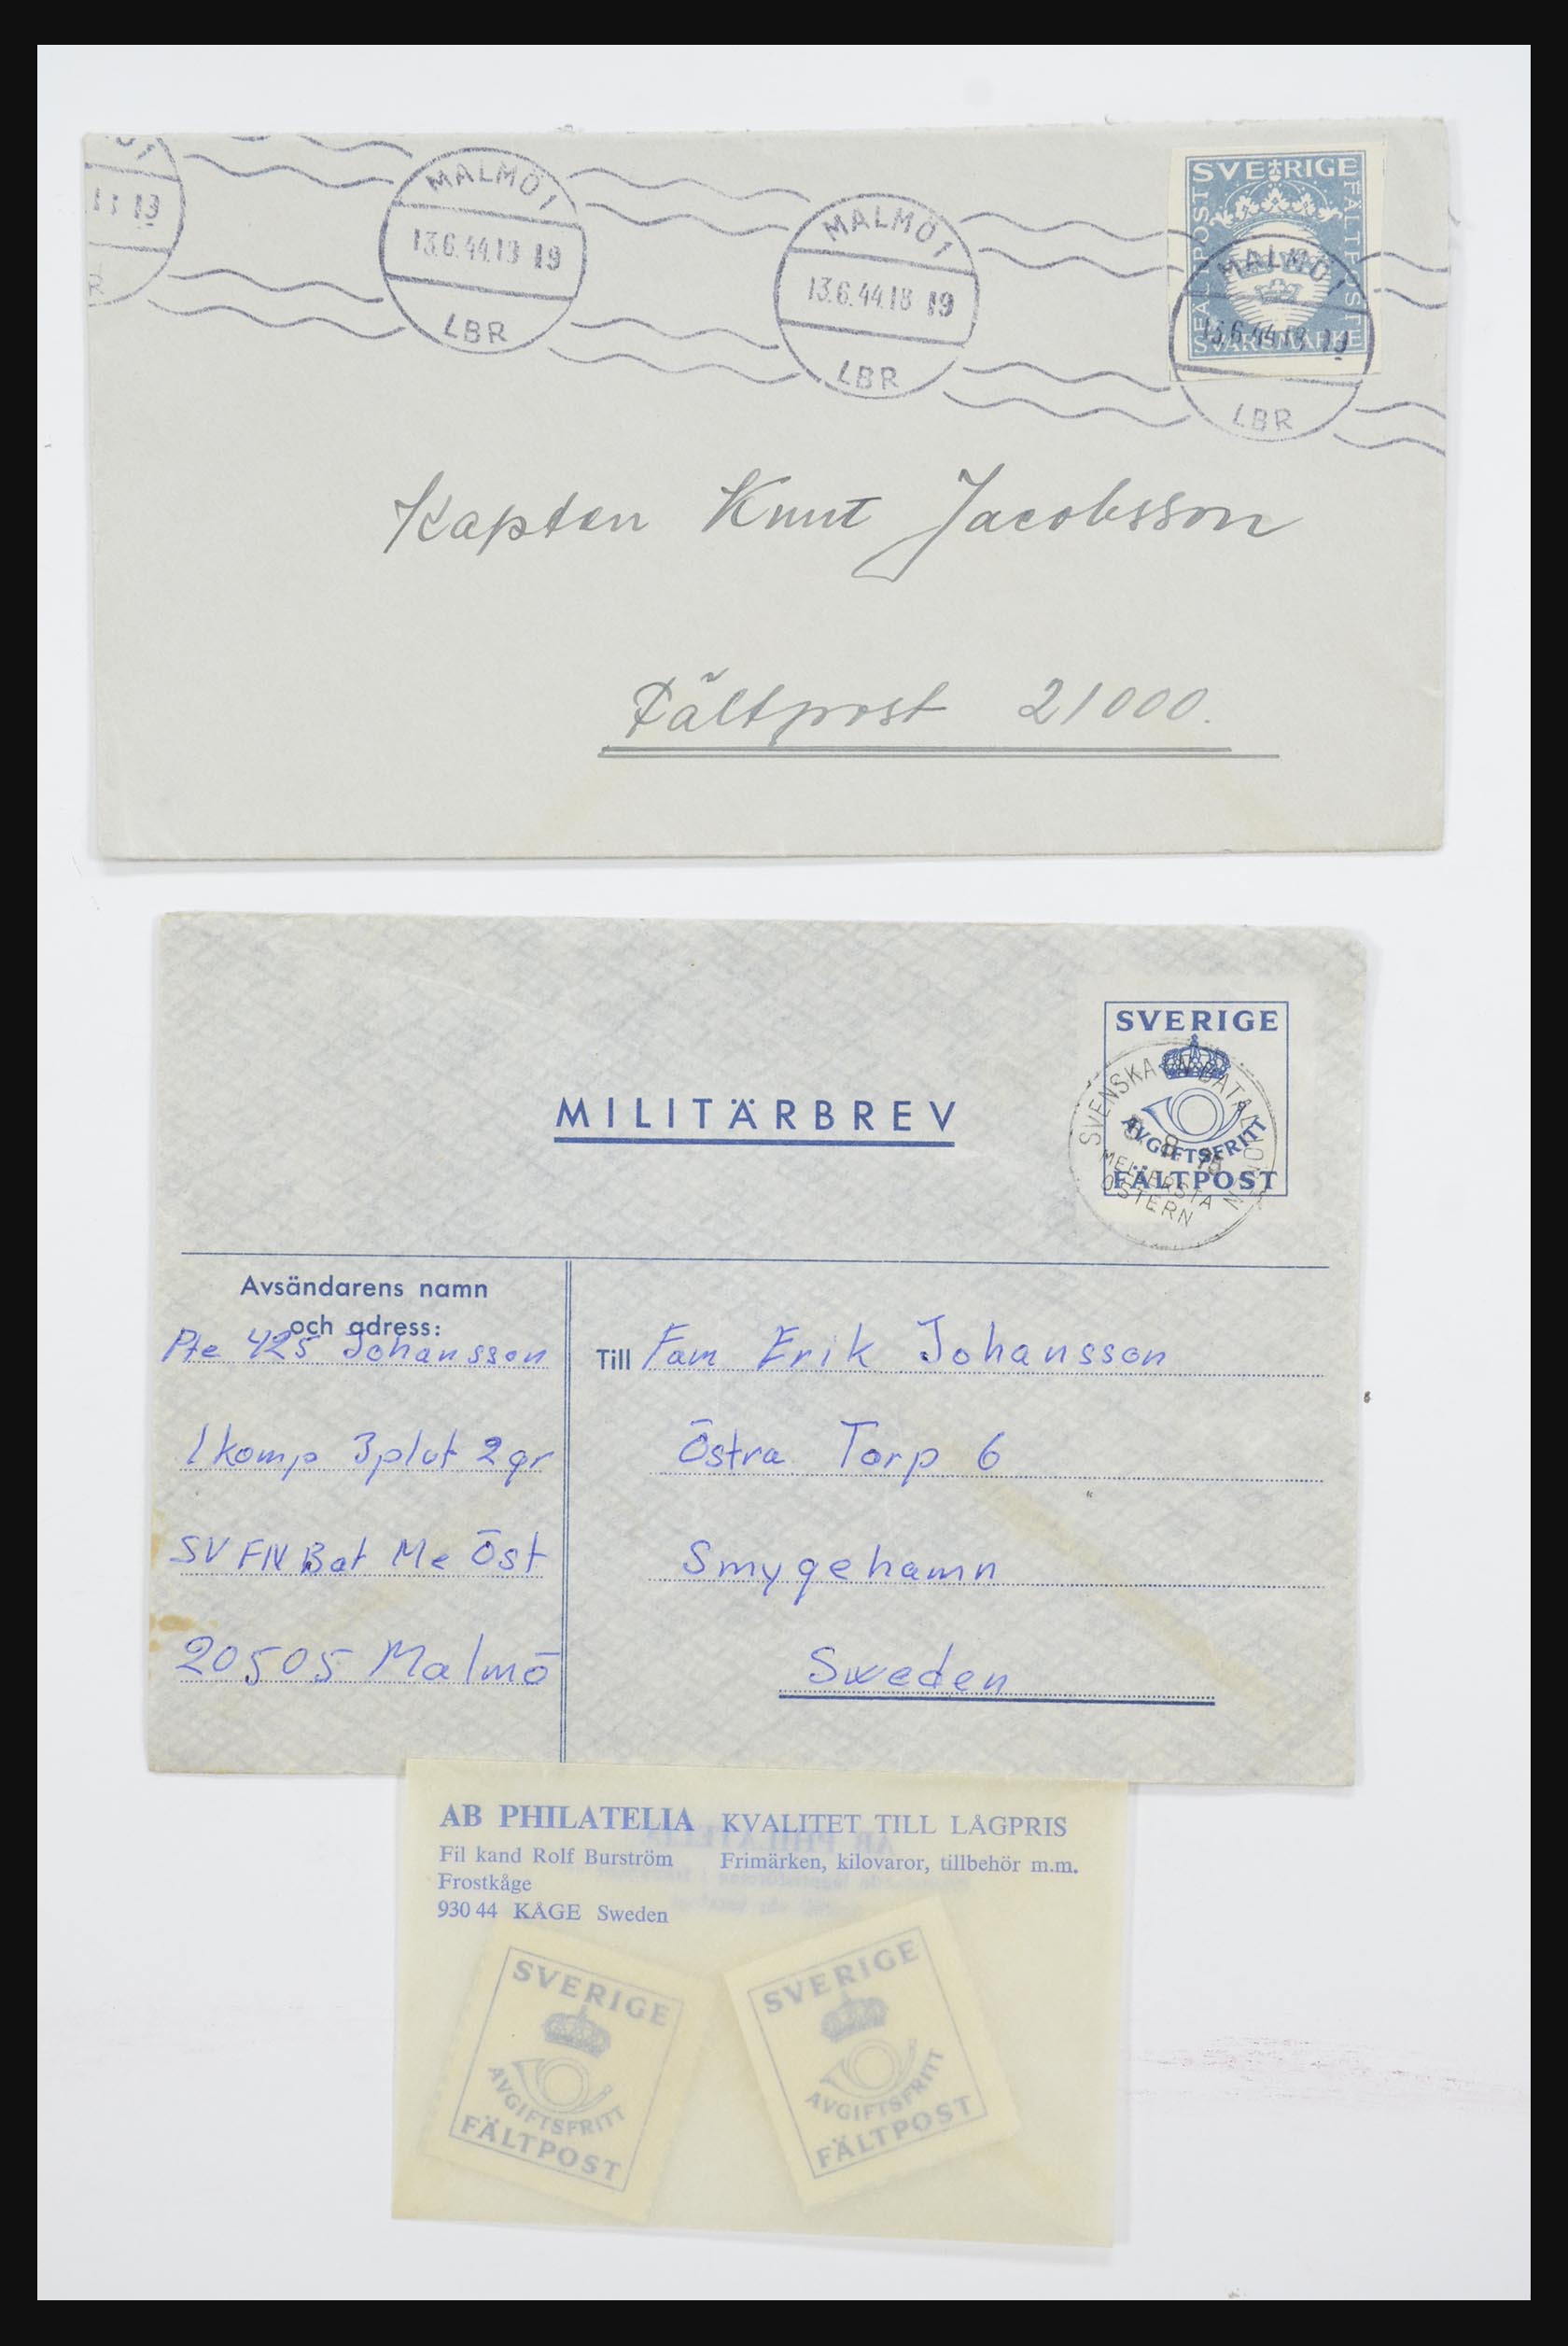 13 19
MALMÖ 1
13.6.44.19 19
LBR
MALMÖ 1
13.6.44.18 19
LBR
SVERIGE
FÄLTPOST
SVARSMÄRKE
MALMÖ 1
13.6.44.18 19
LBR
Kapten Knut Jacobsson
Fältpost 21000.
SVERIGE
AVGIFTSFRITT
FÄLTPOST
SVENSKA FN-BATALJONEN
MELLERSTA
ÖSTERN
MILITÄRBREV
Avsändarens namn
och adress:
Pte 425 Johansson
1 komp 3plut 2gr
SV FN Bat Me Öst
20505 Malmö
Till Fam Erik Johansson
Östra Torp 6
Smygehamn
Sweden
AB PHILATELIA KVALITET TILL LÅGPRIS
Fil kand Rolf Burström Frimärken, kilovaror, tillbehör m.m.
Frostkåge
930 44 KÅGE Sweden
SVERIGE
AVGIFTSFRITT
FÄLTPOST
SVERIGE
AVGIFTSFRITT
FÄLTPOST